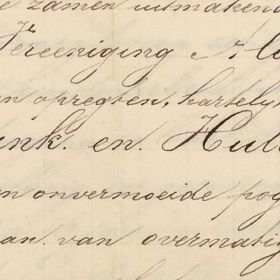 zamen uitmakend
Vereeniging
opregten, hartely
en. Hul
onvermoeide pog
van overmatig